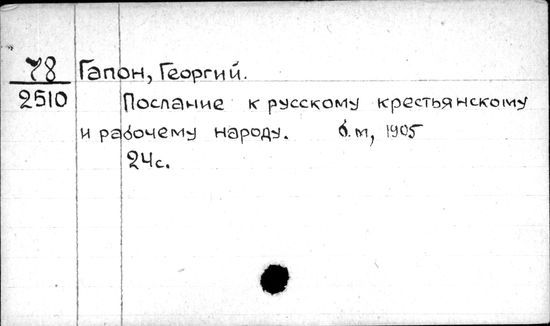 78 Гапон, Георгий.
2510 Послание к русскому крестьянскому
и рабочему народу. б.м, 1905
24с.